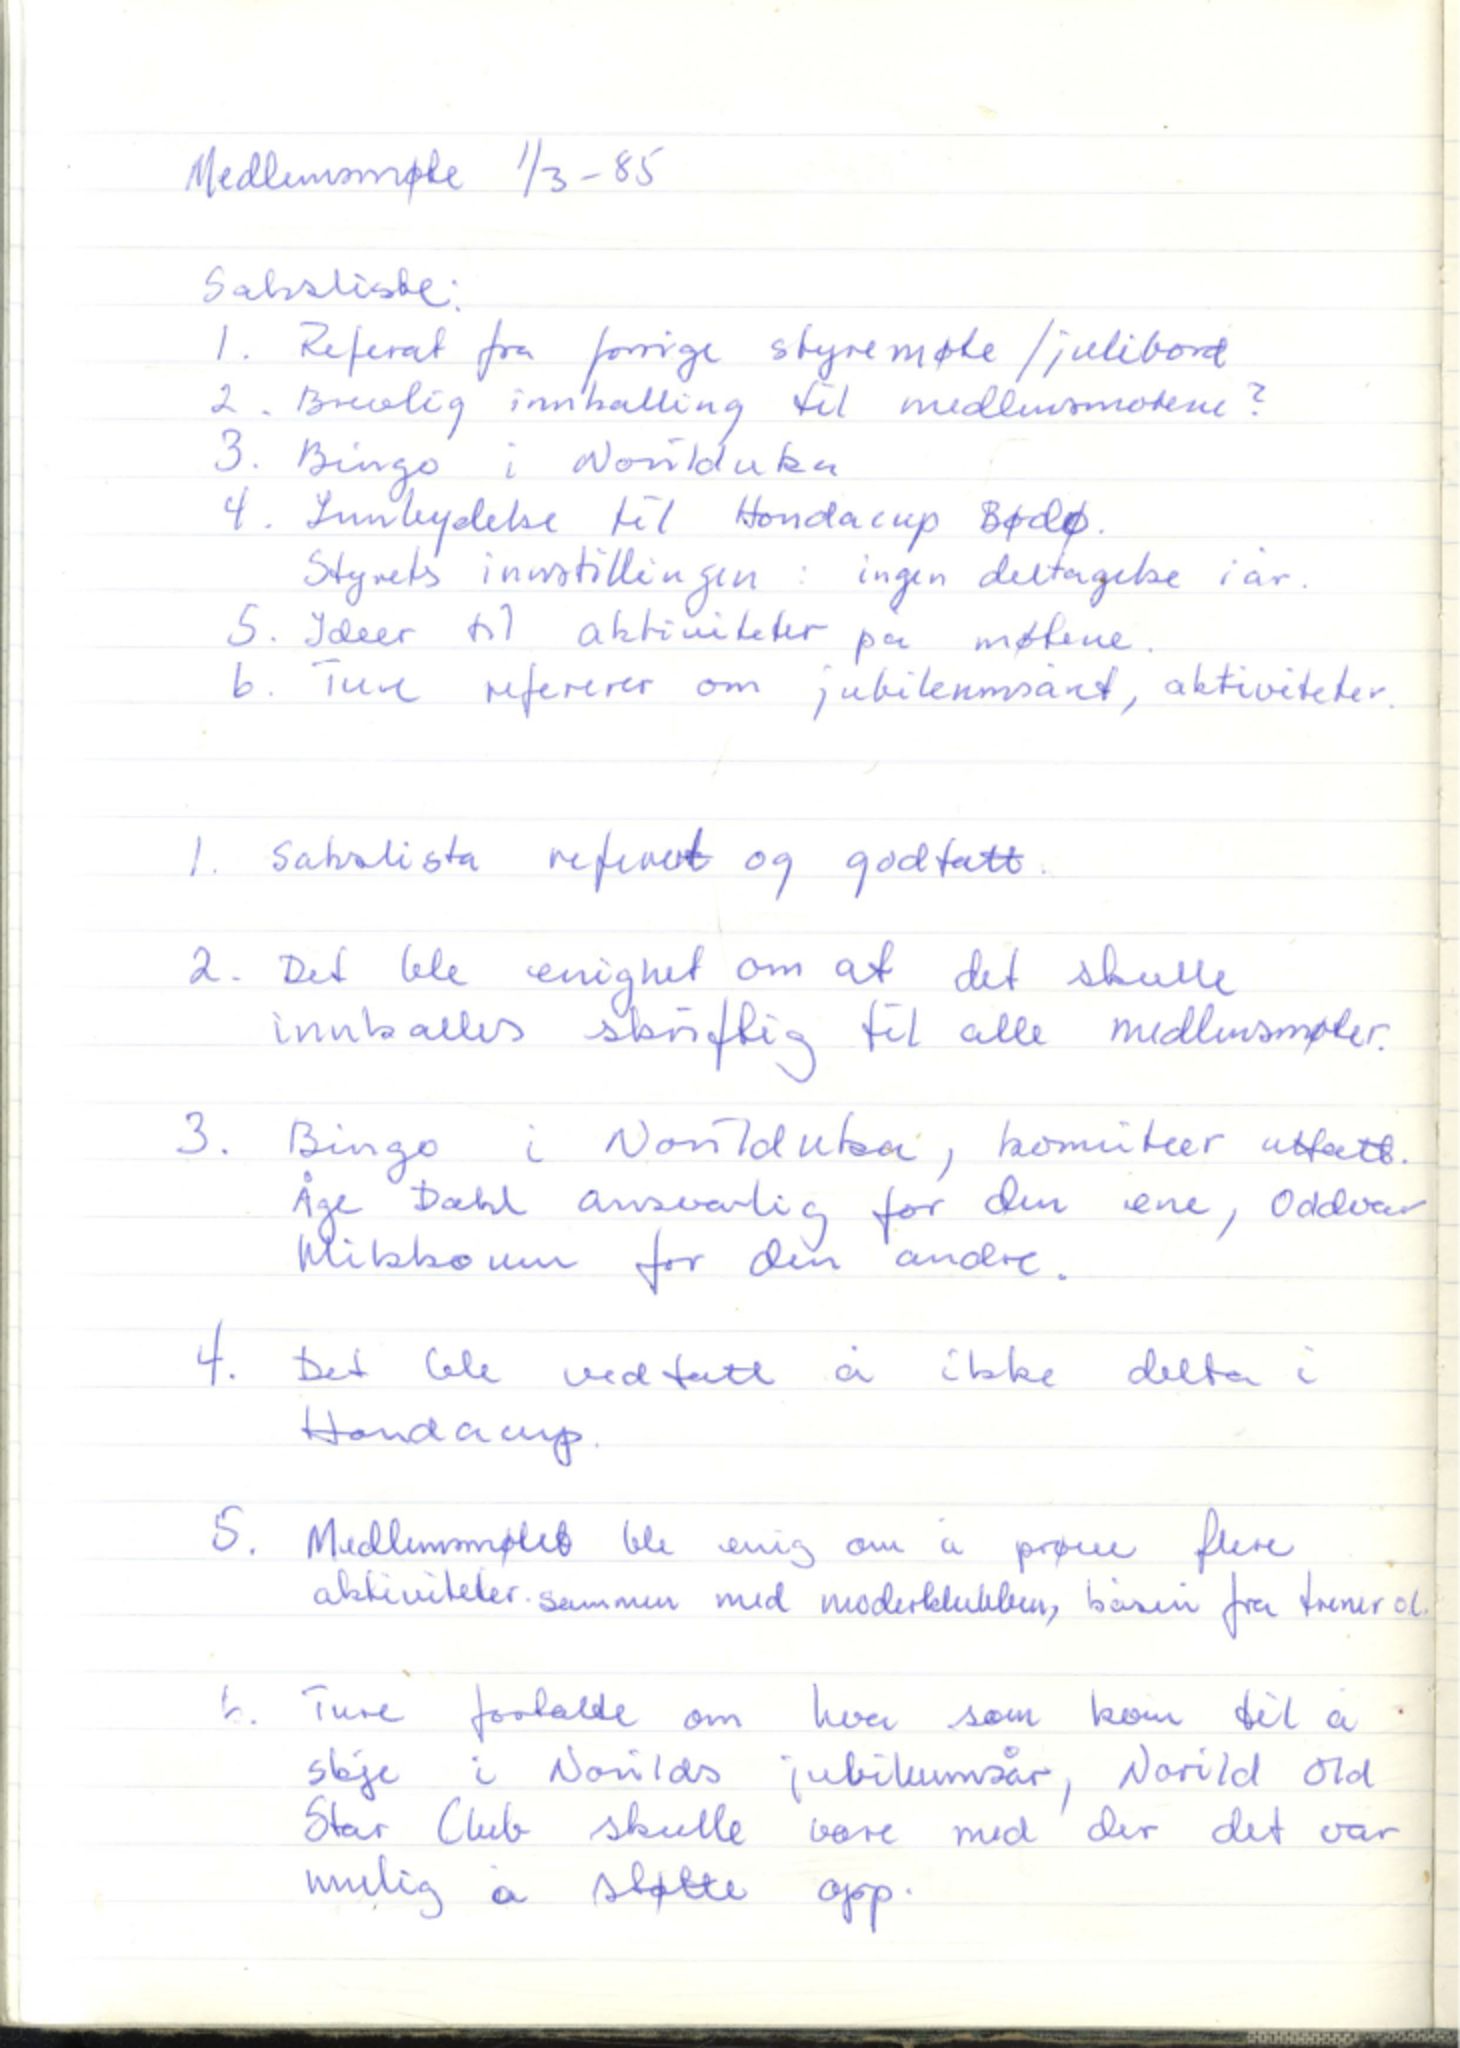 Medlemsmøte 1/3-85
Saksliste:
1. Referat fra forrige styremøte / julebord
2. Brevlig innkalling til medlemsmøtene?
3. Bingo i Norilduka
4. Innbydelse til Hondacup Bødø.
Styrets innstillingen : ingen deltagelse i år.
5. Ideer til aktiviteter på møtene.
6. Ture refererer om jubileumsåret, aktiviteter.
1. Sakslista referert og godtatt.
2. Det ble enighet om at det skulle
innkalles skriftlig til alle medlemsmøter.
3. Bingo i Norilduka, komiteer uttatt.
Åge Dahl ansvarlig for den ene, Oddvar
for den andre.
4. Det ble vedtatt å ikke delta i
Hondacup.
5. Medlemsmøtet ble enig om å prøve flere
aktiviteter sammen med moderklubben, fra trener ol.
6. Ture fortalte om hva som kom til å
skje i Norilds jubileumsår, Norild Old
Star Club skulle være med der det var
mulig å støtte opp.